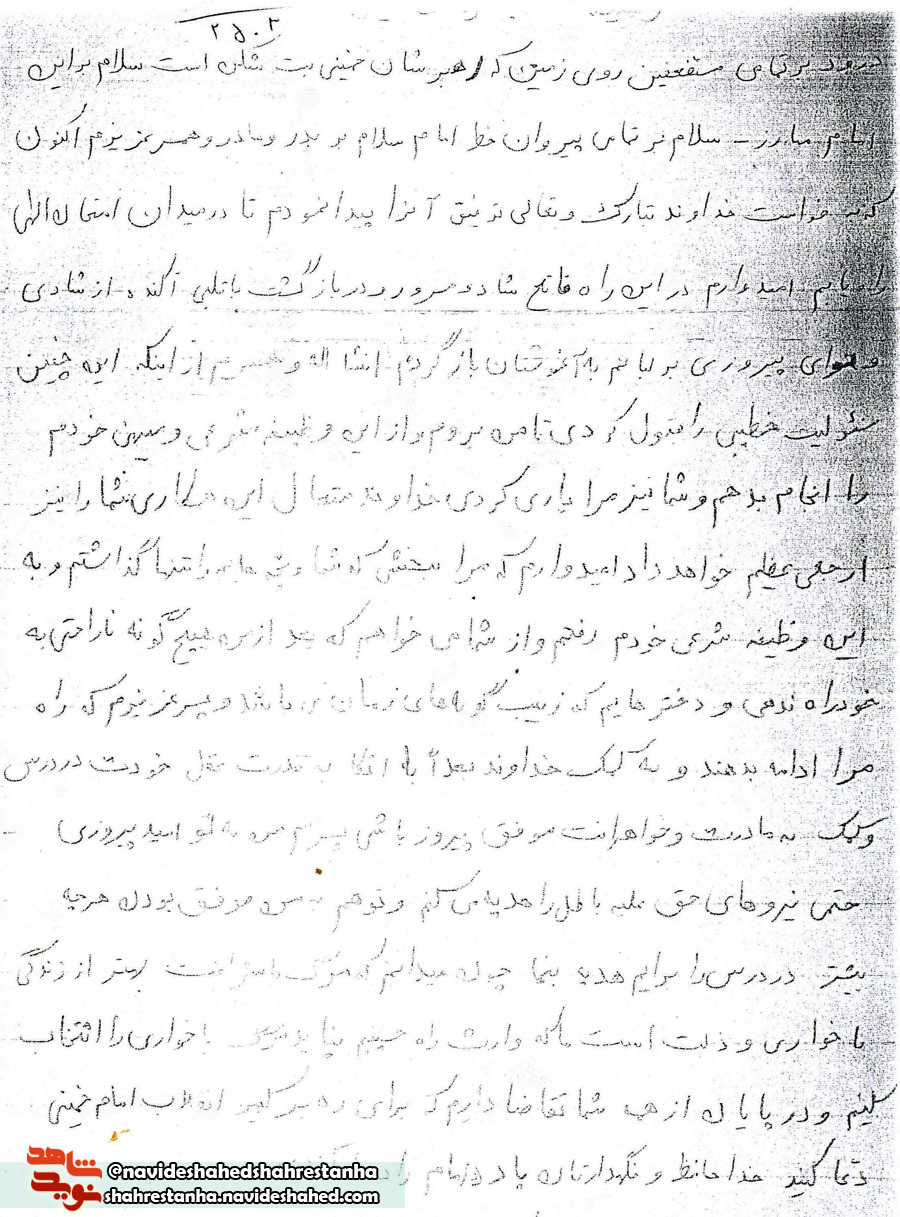 ۲۵۰۲
درود بر تمامی مستضعفین روی زمین که رهبرشان خمینی بت شکن است سلام بر این
امام مبارز – سلام بر تمامی پیروان خط امام سلام بر پدر و مادر و همسر عزیزم اکنون
که خواست خداوند تبارک و تعالی توفیق آنرا پیدا نمودم تا در میدان امتحان الهی
راه یابم امیدوارم در این راه فاتح شاد و مسرور و در بازگشت با قلبی آکنده از شادی
و پیروزی بر لبانم به آغوشتان بازگردم انشاالله و همسرم از اینکه این چنین
مسئولیت خطیری را قبول کردی تا من بروم و از این وظیفه شرعی و میهن خودم
را انجام بدهم و شما نیز مرا یاری کردی خداوند متعال این همکاری شما را نیز
اجر عظیم خواهد داد امیدوارم که مرا ببخشی که شما و بچه هایم را تنها گذاشتم و به
این وظیفه شرعی خودم رفتم و از شما می خواهم که بعد از من هیچ گونه ناراحتی به
خود راه ندهی و دخترهایم که زینب گونه های زمان می باشند و پسر عزیزم که راه
مرا ادامه بدهند و به کمک خداوند بعداً با اتکا به قدرت عقل خودت در درس
و کمک به مادرت و خواهرانت موفق پیروز باشی پسرم من به تو امید پیروزی
حتمی نیروهای حق علیه باطل را هدیه می کنم و تو هم به من موفق بودن هر چه
بیشتر در درس را برایم هدیه بنما چون میدانم که مرگ با شرافت بهتر از زندگی
با خواری و ذلت است ما که وارث راه حسینیم نباید با خواری را انتخاب
کنیم و در پایان از همه شما تقاضا دارم که برای رهبر کبیر انقلاب امام خمینی
دعا کنید خداحافظ و نگهدارتان باد امام را
نوید شاهد
@navideshahedshahrestanha
shahrestanha.navideshahed.com